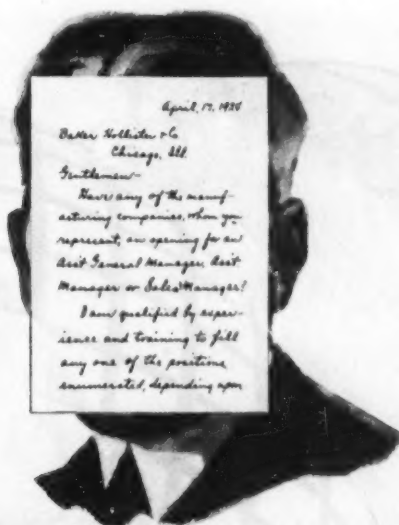 April, 17, 1920
Baker Hollister & Co
Chicago, Ill
Gentlemen-
Have any of the manuf-
acturing companies, whom you
represent, an opening for an
Asst General Manager, Asst
Manager or Sales Manager?
I am qualified by exper-
ience and training to fill
any one of the positions
enumerated, depending upon